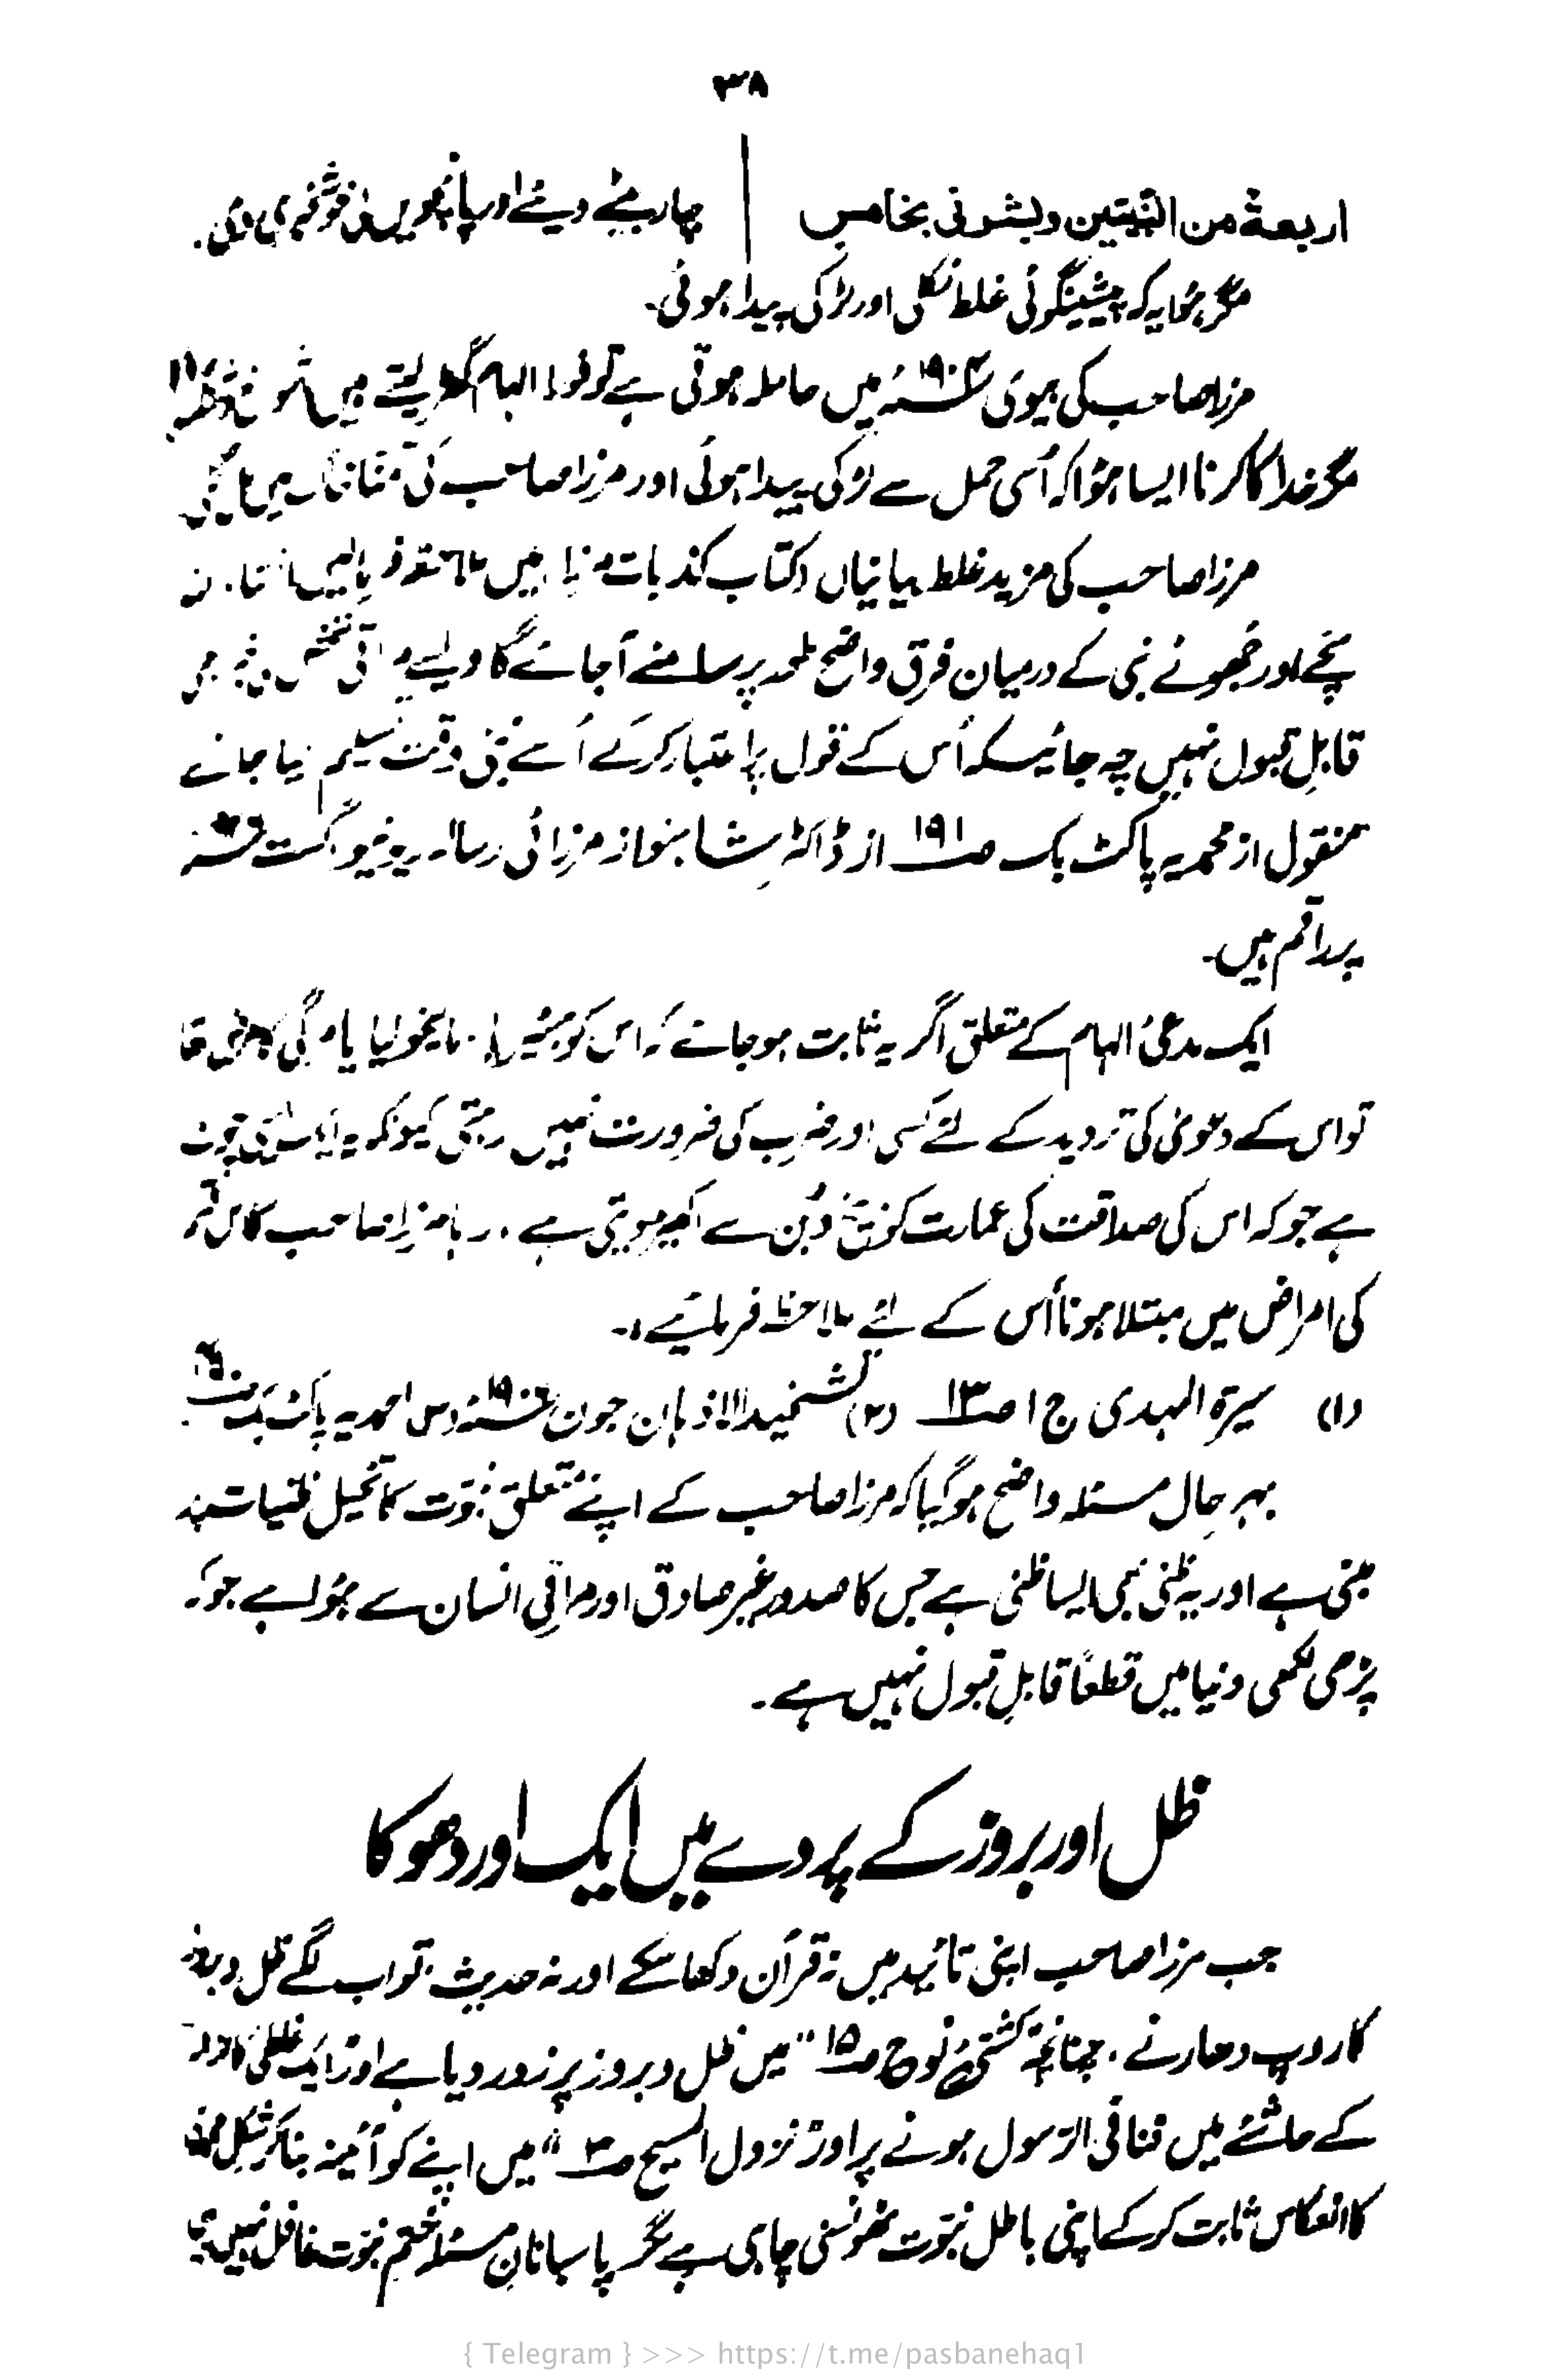 ۳۸
اربعۃ من البنین وبشرنی بخامس
چار بیٹے دیئے اور پانچویں کی خوشخبری دی.
مگر ہؤا یہ کہ پیشینگوئی غلط نکلی اور لڑکی پیدا ہوئی۔
مرزا صاحب کی بیوی میں حاملہ ہوتی ہے تو فوراً الہام گھڑ لیتے ہیں
مگر خدا کا کرنا ایسا ہؤا کہ اُسی حمل سے لڑکی پیدا ہوئی اور مرزا صاحب کی
مرزا صاحب کی مزید غلط بیانیاں کتاب کذبات مرزا میں
سچے اور جھوٹے نبی کے درمیان فرق واضح طور پر سامنے آجائے گا ویسے مراقی شخص
قابلِ قبول نہیں چہ جائیکہ اُس کے قول پر اعتبار کرکے اُسے نبی وقت تسلیم کیا جائے
منقول از محمدیہ پاکٹ بک صـ۱۹۱ از ڈاکٹر شاہنواز مرزائی رسالہ ریویو اگست
پر راقم ہیں۔
ایک مدعیٔ الہام کے متعلق اگر یہ ثابت ہوجائے کہ اس کو ہسٹیریا. مالیخولیا یا مرگی کا مرض تھا
تو اس کے دعویٰ کی تردید کے لئے کسی اور ضرب کی ضرورت نہیں رہتی کیونکہ یہ ایک ایسی چوٹ
ہے جو کہ اس کی صداقت کی عمارت کو بیخ وبُن سے اکھیڑ دیتی ہے. رہا مرزا صاحب کا اس قسم
کی امراض میں مبتلا ہونا اُس کے لئے ملاحظہ فرمایئے،۔
(۱) سیرۃ المہدی ج ۱ صـ۱۳ (۲) تشحیذ الاذہان جون ۱۹۰۶ء (۳) احمدیہ پاکٹ بک
بہرحال مسئلہ واضح ہوگیا کہ مرزا صاحب کے اپنے متعلق نبوّت کا تخیل ظنیات پر
مبنی ہے اور یہ ظنی بھی ایسا ظنی ہے جس کا صدور غیر صادق اور مراقی انسان سے ہؤا ہے جو کہ
پڑھی لکھی دنیا میں قطعًا قابلِ قبول نہیں ہے۔
ظل اور بروز کے پردے میں ایک اور دھوکا
جب مرزا صاحب اپنی تائید میں نہ قرآن دکھا سکے اور نہ حدیث، تو اب لگے ظل و بروز
کا روپ دھارنے. چنانچہ "کشتیٔ نوح صـ۱۵" میں ظل و بروز پر زور دیا ہے اور "ایک غلطی کا ازالہ"
کے حاشئے میں فنافی الرّسول ہونے پر اور "نزول المسیح صـ۳" میں اپنے کو آئینہ بنا کر شکل محمدؐ
کا انعکاس ثابت کرکے اپنی باطل نبوّت ٹھونسنی چاہی ہے مگر پاسبانانِ مسئلہ ختم نبوّت غافل نہیں ہیں
{ Telegram } >>> https://t.me/pasbanehaq1